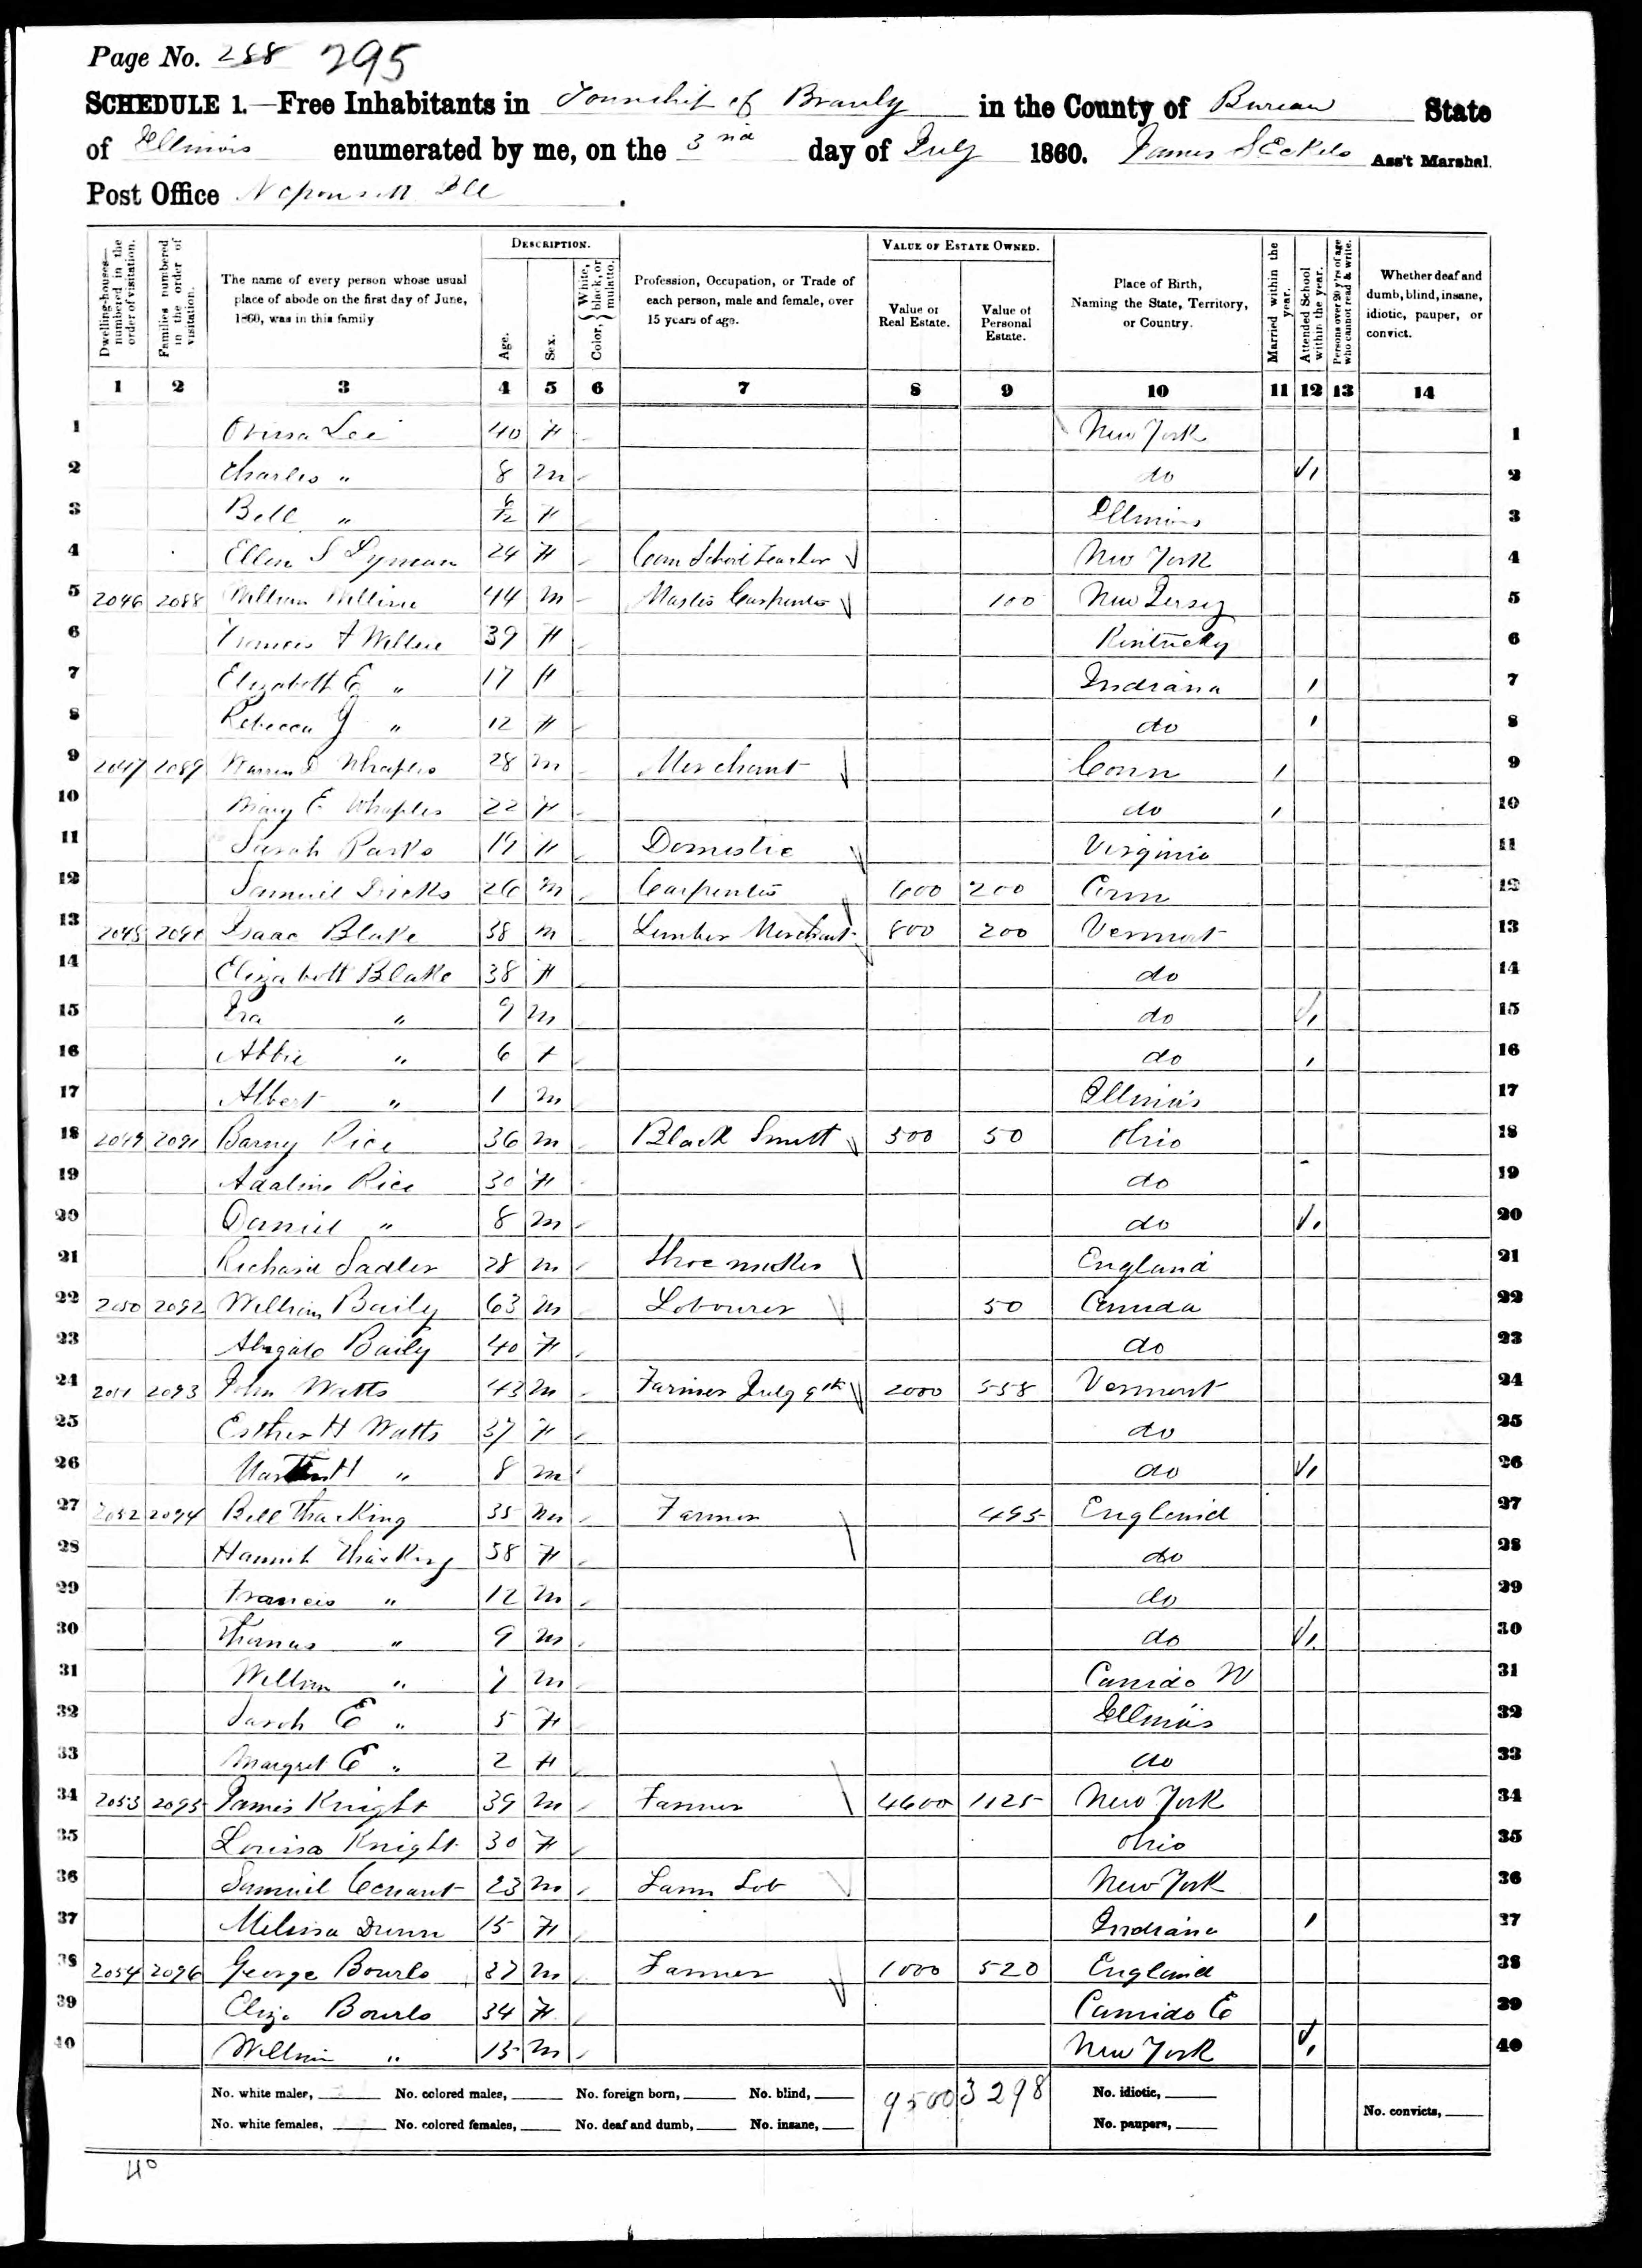 Page No. 288 295
SCHEDULE 1.—Free Inhabitants in Township of Brawly in the County of Bureau State
of Illinois enumerated by me, on the 3rd day of July 1860. James S Eckels Ass't Marshal.
Post Office Neponsett Ill.
Dwelling-houses—numbered in the order of visitation.
Families numbered in the order of visitation.
The name of every person whose usual place of abode on the first day of June, 1860, was in this family
DESCRIPTION.
Age.
Sex.
Color, { White, black, or mulatto.
Profession, Occupation, or Trade of each person, male and female, over 15 years of age.
VALUE OF ESTATE OWNED.
Value of Real Estate.
Value of Personal Estate.
Place of Birth, Naming the State, Territory, or Country.
Married within the year.
Attended School within the year.
Persons over 20 y'rs of age who cannot read & write.
Whether deaf and dumb, blind, insane, idiotic, pauper, or convict.
1 2 3 4 5 6 7 8 9 10 11 12 13 14
1 Orissa Lee 40 F New York 1
2 Charles " 8 m do 2
3 Bell " 6/12 F Illinois 3
4 Ellen S Lyman 24 F Com School Teacher New York 4
5 2046 2088 William 44 m Master Carpenter 100 New Jersey 5
6 Frances A 39 F Kentucky 6
7 Elizabeth E " 17 F Indiana 7
8 Rebecca J " 12 F do 8
9 2047 2089 Warren Whaples 28 m Merchant Conn 9
10 Mary E Whaples 22 F do 10
11 Sarah Parks 19 F Domestic Virginia 11
12 Samuel Dicks 26 m Carpenter 600 200 Conn 12
13 2048 2090 Isaac Blake 38 m Lumber Merchant 800 200 Vermont 13
14 Elizabett Blake 38 F do 14
15 Ira " 9 m do 15
16 Abbie " 6 f do 16
17 Albert " 1 m Illinois 17
18 2049 2091 Barny Rice 36 m Black Smitt 500 50 Ohio 18
19 Adaline Rice 30 F do 19
20 Daniel " 8 m do 20
21 Richard Sadler 28 m Shoe maker England 21
22 2050 2092 William Baily 63 m Labourer 50 Canada 22
23 Abigale Baily 40 F do 23
24 2051 2093 John Watts 43 m Farmer July 9th 2000 558 Vermont 24
25 Esther H Watts 37 F do 25
26 H " 8 m do 26
27 2052 2094 Bell Thacking 35 m Farmer 495 England 27
28 Hannah Thacking 38 F do 28
29 Francis " 12 m do 29
30 Thomas " 9 m do 30
31 William " 7 m Canada W 31
32 Sarah E " 5 F Illinois 32
33 Margret E " 2 F do 33
34 2053 2095 James Knight 39 m Farmer 4600 1125 New York 34
35 Louisa Knight 30 F Ohio 35
36 Samuel Conant 23 m Farm Lab New York 36
37 Melissa Dunn 15 F Indiana 37
38 2054 2096 George Bourls 37 m Farmer 1000 520 England 38
39 Eliza Bourls 34 F Canada E 39
40 William " 15 m New York 40
No. white males, No. colored males, No. foreign born, No. blind, 9500 3298 No. idiotic,
No. white females, No. colored females, No. deaf and dumb, No. insane, No. paupers, No. convicts,
40